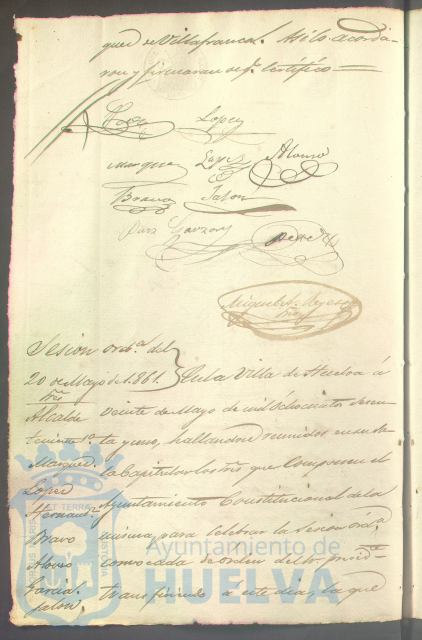 ques de Villafranca. Asi lo acorda-
ron y firmaran de q.e certifico
Lopez
Marquez Lopez Alonso
Bravo Jalon
Garzon Perez
Sesion ord.a del
20 de Mayo de 1861.
En la Villa de Huelva á
Sres
Alcalde
veinte de Mayo de mil ochocientos sesen-
Teniente 1.o
ta y uno, hallandose reunidos en su Sa-
Marquez.
la Capitular los Sres que componen el
Lopez
Hernand.z
Ayuntamiento Constitucional de la
Bravo
misma, para celebrar la Sesion ord.a
Alonso
convocada de orden del Sr. presid.te
Garcia.
Jalon.
transfiriendo a este dia, la que
Ayuntamiento de
HUELVA